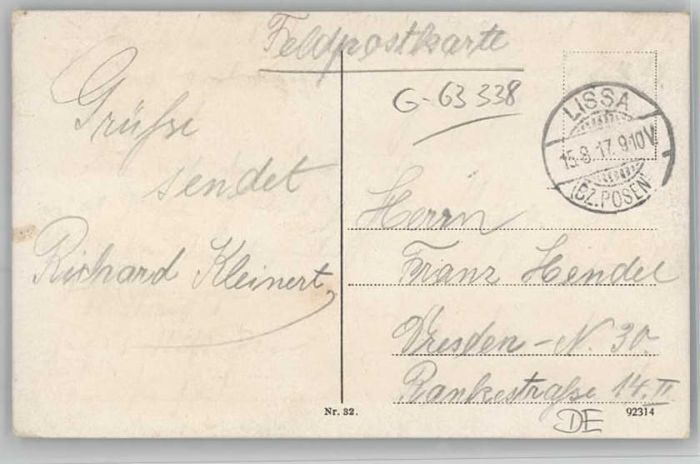 Feldpostkarte
G-63338
LISSA
15.8.17.9-10V
(BZ. POSEN)
Grüße
sendet
Richard Kleinert,
Herrn
Franz Hendel
Dresden-N. 30.
Rankestraße 14 II
DE
Nr. 32.
92314